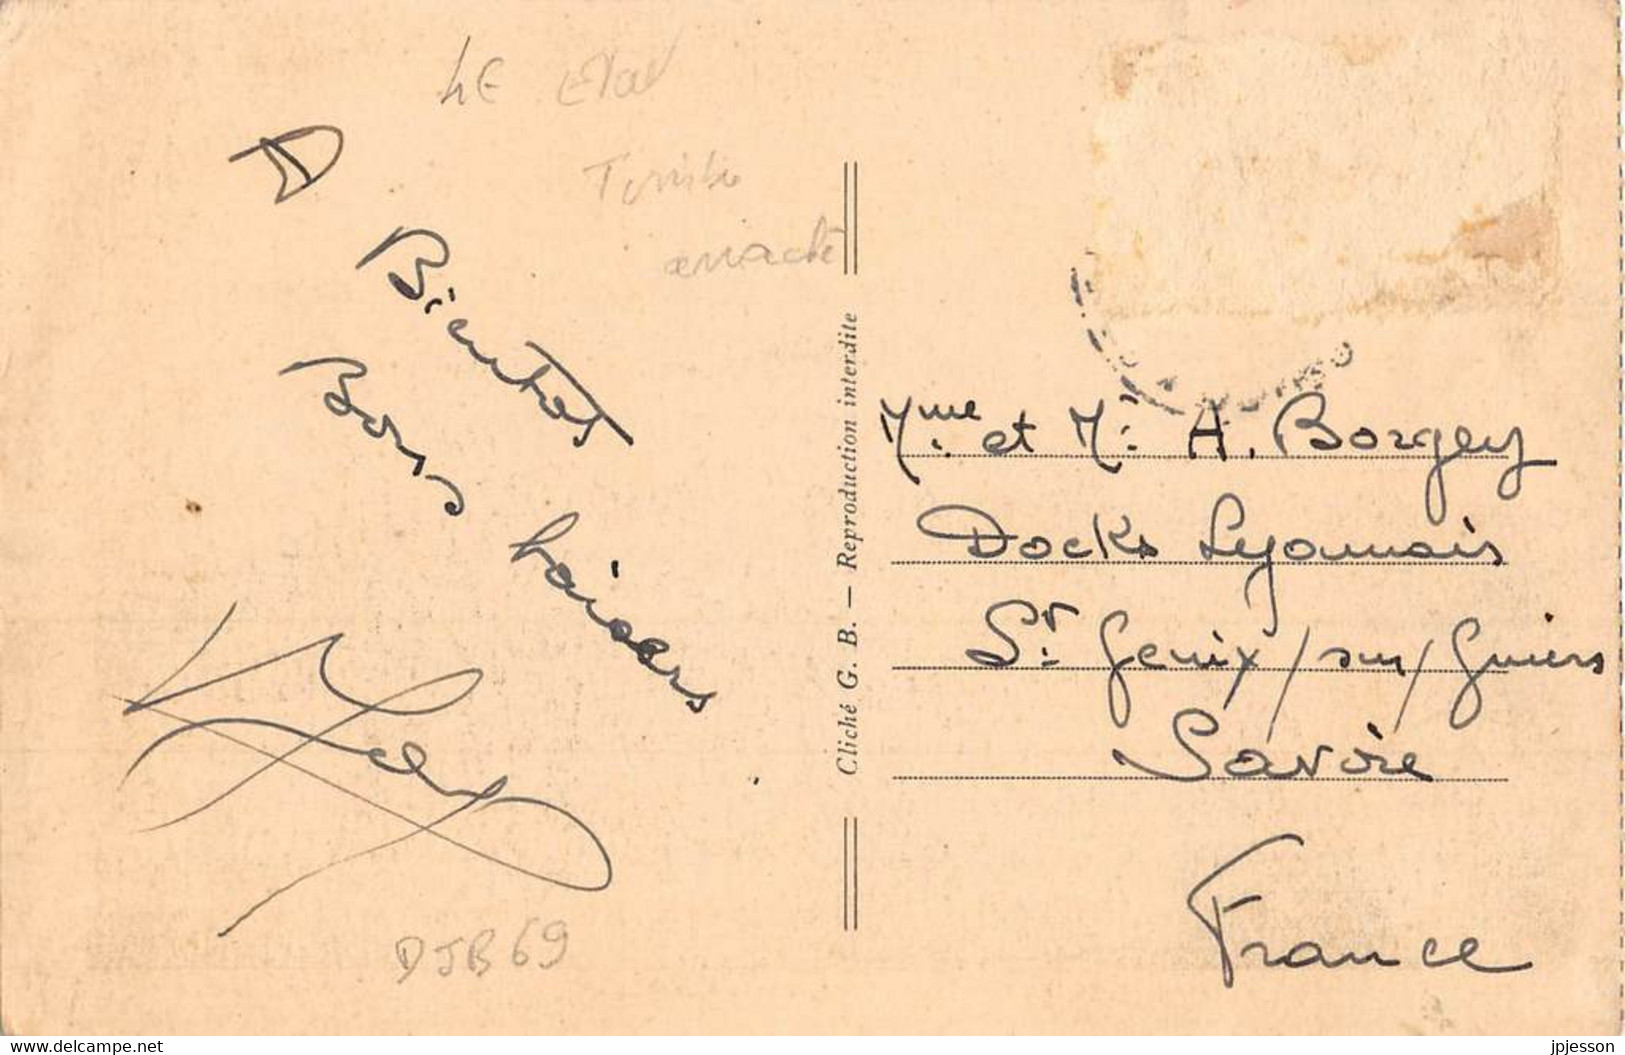 4E etat
Timbre
arraché
A
Bientot
Bons baisers
DJB 69
Cliché G. B. — Reproduction interdite
Mme et Mr A. Borgey
Docks Lyonnais
St Genix/sur/Guiers
Savoie
France
www.delcampe.net
jpjesson